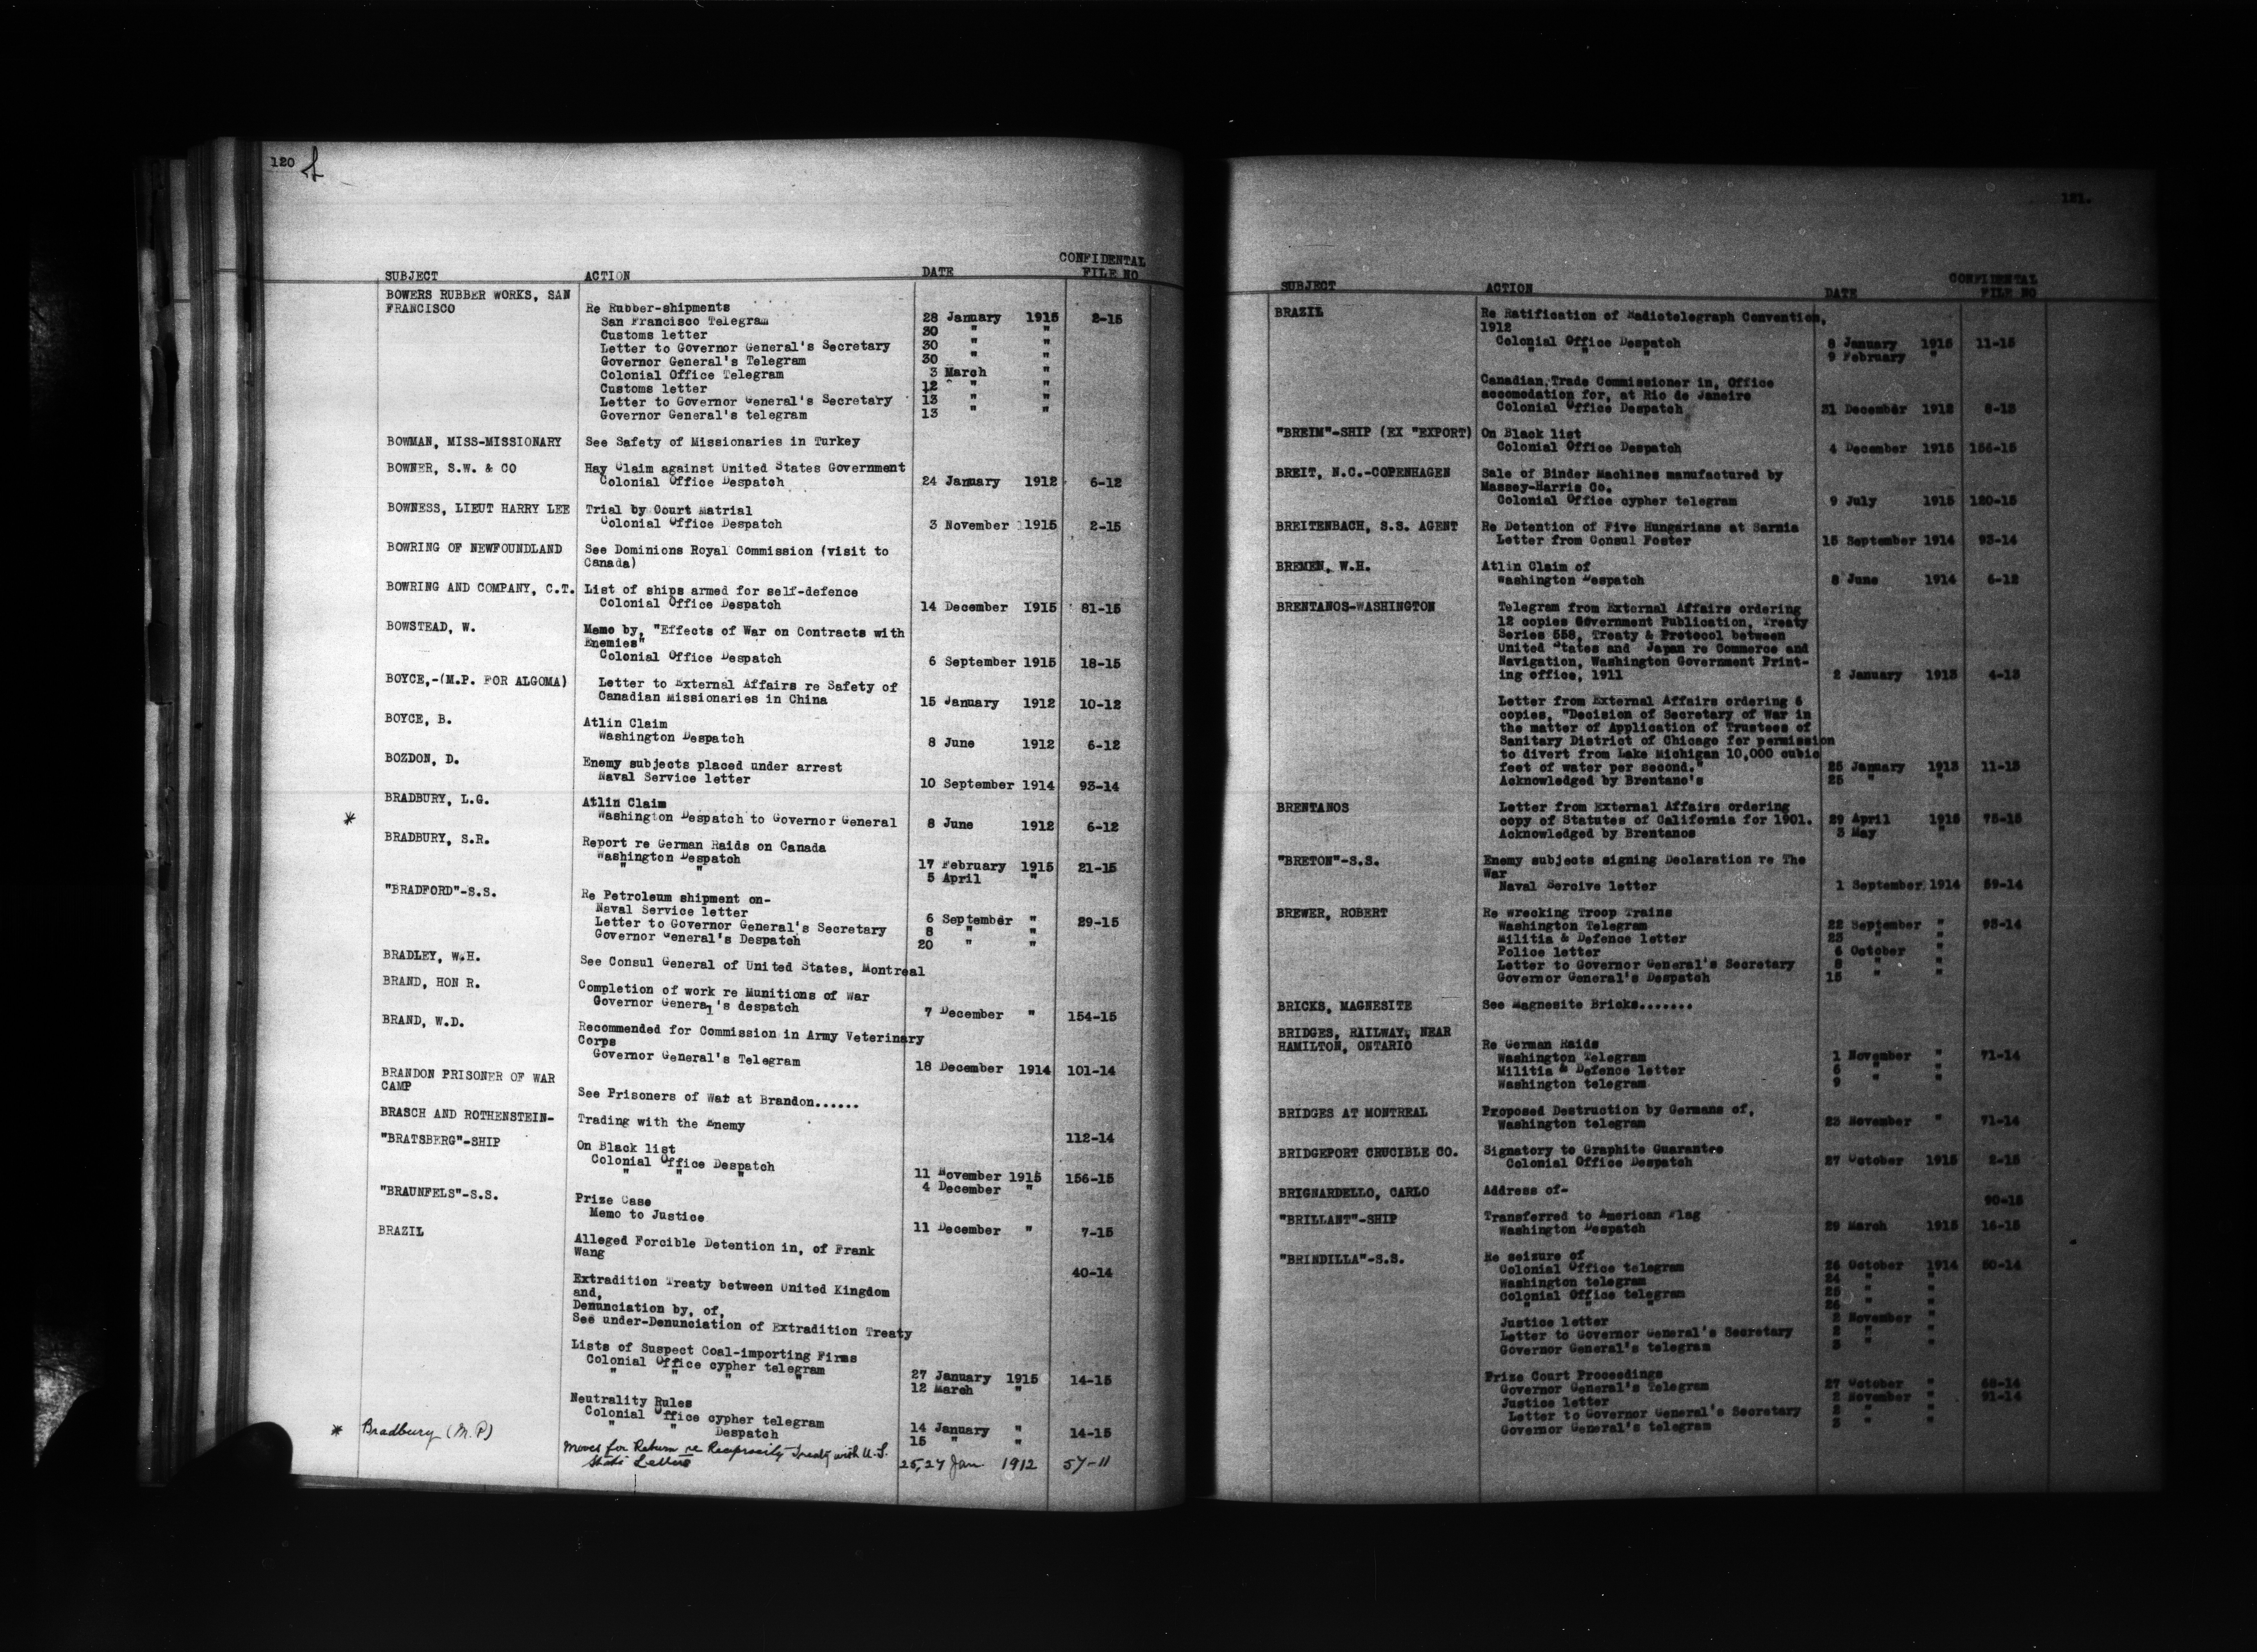 120
SUBJECT ACTION DATE CONFIDENTAL FILE NO
BOWERS RUBBER WORKS, SAN
FRANCISCO Re Rubber-shipments
San Francisco Telegram 28 January 1915 2-15
Customs letter 30 " "
Letter to Governor General's Secretary 30 " "
Governor General's Telegram 30 " "
Colonial Office Telegram 3 March "
Customs letter 12 " "
Letter to Governor General's Secretary 13 " "
Governor General's telegram 13 " "
BOWMAN, MISS-MISSIONARY See Safety of Missionaries in Turkey
BOWNER, S.W. & CO Hay Claim against United States Government
Colonial Office Despatch 24 January 1912 6-12
BOWNESS, LIEUT HARRY LEE Trial by Court Matrial
Colonial Office Despatch 3 November 1915 2-15
BOWRING OF NEWFOUNDLAND See Dominions Royal Commission (visit to
Canada)
BOWRING AND COMPANY, C.T. List of ships armed for self-defence
Colonial Office Despatch 14 December 1915 81-15
BOWSTEAD, W. Memo by, "Effects of War on Contracts with
Enemies"
Colonial Office Despatch 6 September 1915 18-15
BOYCE,-(M.P. FOR ALGOMA) Letter to External Affairs re Safety of
Canadian Missionaries in China 15 January 1912 10-12
BOYCE, B. Atlin Claim
Washington Despatch 8 June 1912 6-12
BOZDON, D. Enemy subjects placed under arrest
Naval Service letter 10 September 1914 93-14
BRADBURY, L.G. Atlin Claim
* Washington Despatch to Governor General 8 June 1912 6-12
BRADBURY, S.R. Report re German Raids on Canada
Washington Despatch 17 February 1915 21-15
" " 5 April "
"BRADFORD"-S.S. Re Petroleum shipment on-
Naval Service letter 6 September " 29-15
Letter to Governor General's Secretary 8 " "
Governor General's Despatch 20 " "
BRADLEY, W.H. See Consul General of United States, Montreal
BRAND, HON R. Completion of work re Munitions of War
Governor General's despatch 7 December " 154-15
BRAND, W.D. Recommended for Commission in Army Veterinary
Corps
Governor General's Telegram 18 December 1914 101-14
BRANDON PRISONER OF WAR
CAMP See Prisoners of War at Brandon......
BRASCH AND ROTHENSTEIN- Trading with the Enemy 112-14
"BRATSBERG"-SHIP On Black list
Colonial Office Despatch 11 November 1915 156-15
" " " 4 December "
"BRAUNFELS"-S.S. Prize Case
Memo to Justice 11 December " 7-15
BRAZIL Alleged Forcible Detention in, of Frank
Wang 40-14
Extradition Treaty between United Kingdom
and,
Denunciation by, of,
See under-Denunciation of Extradition Treaty
Lists of Suspect Coal-importing Firms
Colonial Office cypher telegram 27 January 1915 14-15
" " " " 12 March "
Neutrality Rules
Colonial Office cypher telegram 14 January " 14-15
" " Despatch 15 " "
* Bradbury (M.P) Moves for Return re Reciprocity Treaty with U.S.
State Letters 25, 27 Jan 1912 57-11
121.
SUBJECT ACTION DATE CONFIDENTAL FILE NO
BRAZIL Re Ratification of Radiotelegraph Convention,
1912
Colonial Office Despatch 8 January 1915 11-15
" " " 9 February "
Canadian, Trade Commissioner in, Office
accomodation for, at Rio de Janeiro
Colonial Office Despatch 31 December 1912 8-13
"BREIM"-SHIP (EX "EXPORT) On Black list
Colonial Office Despatch 4 December 1915 156-15
BREIT, N.C.-COPENHAGEN Sale of Binder Machines manufactured by
Massey-Harris Co.
Colonial Office cypher telegram 9 July 1915 120-15
BREITENBACH, S.S. AGENT Re Detention of Five Hungarians at Sarnia
Letter from Consul Foster 15 September 1914 93-14
BREMEN, W.H. Atlin Claim of
Washington Despatch 8 June 1914 6-12
BRENTANOS-WASHINGTON Telegram from External Affairs ordering
12 copies Government Publication, Treaty
Series 558, Treaty & Protocol between
United States and Japan re Commerce and
Navigation, Washington Government Print-
ing office, 1911 2 January 1913 4-13
Letter from External Affairs ordering 6
copies, "Decision of Secretary of War in
the matter of Application of Trustees of
Sanitary District of Chicago for permission
to divert from Lake Michigan 10,000 cubic
feet of water per second." 25 January 1913 11-13
Acknowledged by Brentano's 25 " "
BRENTANOS Letter from External Affairs ordering
copy of Statutes of California for 1901. 29 April 1915 75-15
Acknowledged by Brentanos 3 May "
"BRETON"-S.S. Enemy subjects signing Declaration re The
War
Naval Sercive letter 1 September 1914 59-14
BREWER, ROBERT Re wrecking Troop Trains
Washington Telegram 22 September " 93-14
Militia & Defence letter 23 " "
Police letter 6 October "
Letter to Governor General's Secretary 8 " "
Governor General's Despatch 15 " "
BRICKS, MAGNESITE See Magnesite Bricks.......
BRIDGES, RAILWAY, NEAR
HAMILTON, ONTARIO Re German Raids
Washington Telegram 1 November " 71-14
Militia & Defence letter 6 " "
Washington telegram 9 " "
BRIDGES AT MONTREAL Proposed Destruction by Germans of,
Washington telegram 23 November " 71-14
BRIDGEPORT CRUCIBLE CO. Signatory to Graphite Guarantee
Colonial Office Despatch 27 October 1915 2-15
BRIGNARDELLO, CARLO Address of- 90-15
"BRILLANT"-SHIP Transferred to American Flag
Washington Despatch 29 March 1915 16-15
"BRINDILLA"-S.S. Re seizure of
Colonial Office telegram 26 October 1914 50-14
Washington telegram 24 " "
Colonial Office telegram 25 " "
" " " 26 " "
Justice letter 2 November "
Letter to Governor General's Secretary 2 " "
Governor General's telegram 3 " "
Prize Court Proceedings
Governor General's Telegram 27 October " 68-14
Justice letter 2 November " 91-14
Letter to Governor General's Secretary 2 " "
Governor General's telegram 3 " "